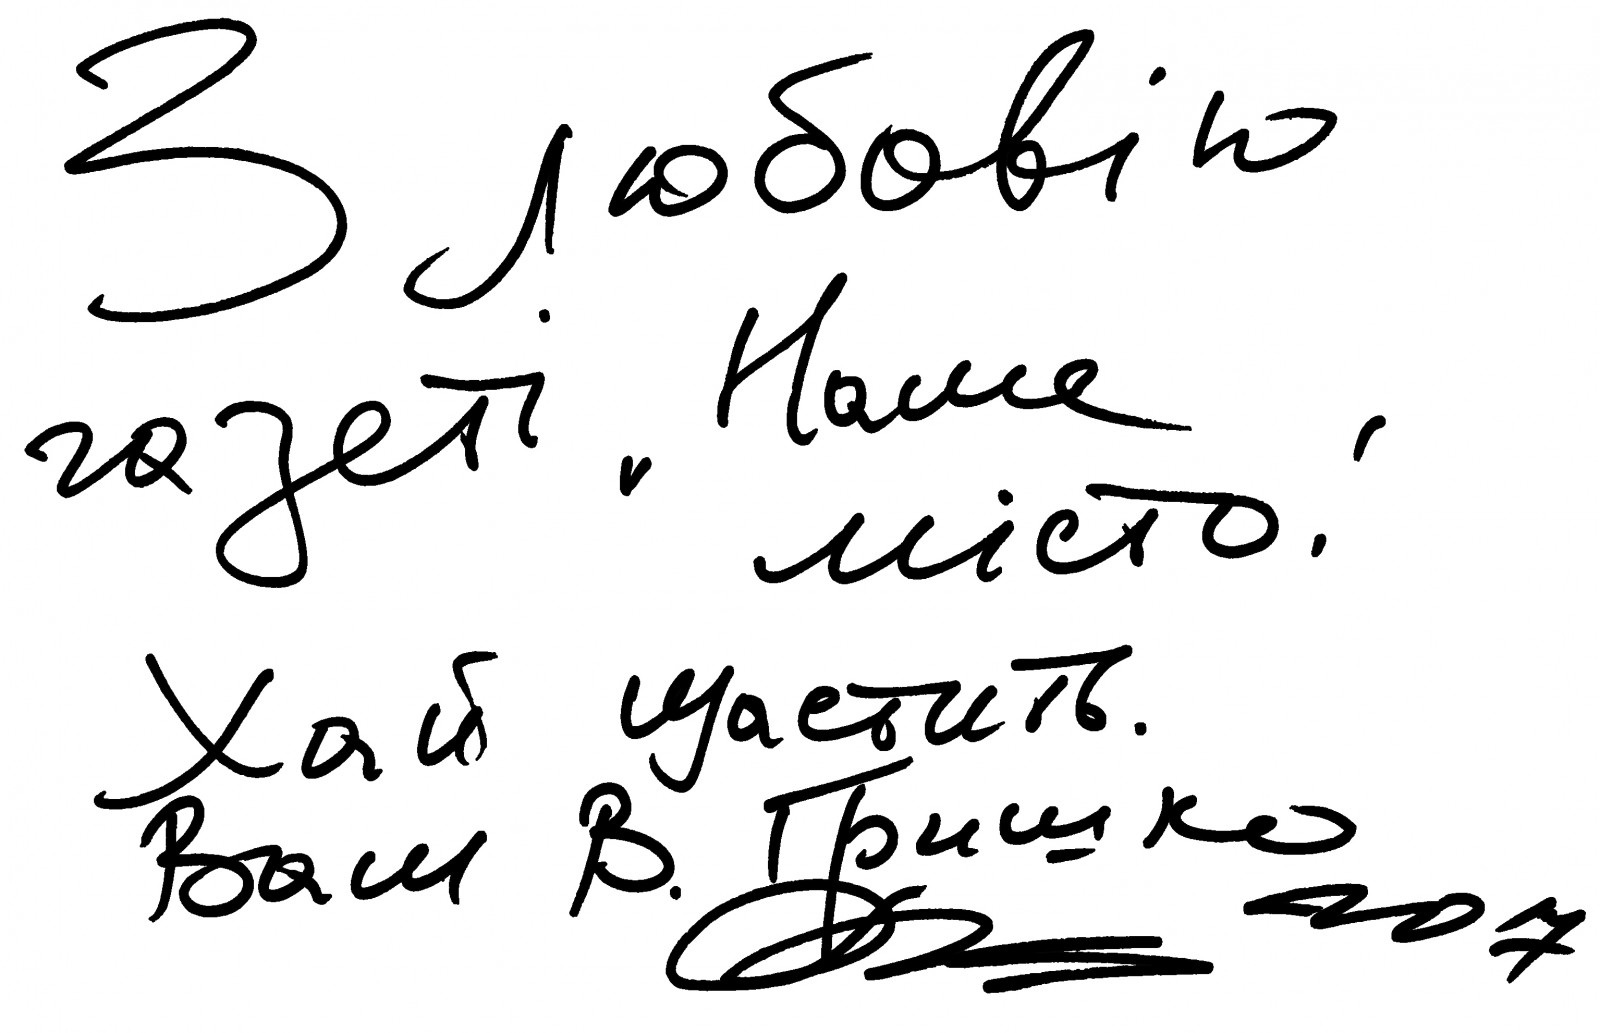 З любовію
газеті „Наше
місто!
Хай щастить.
Ваш В. Гришко